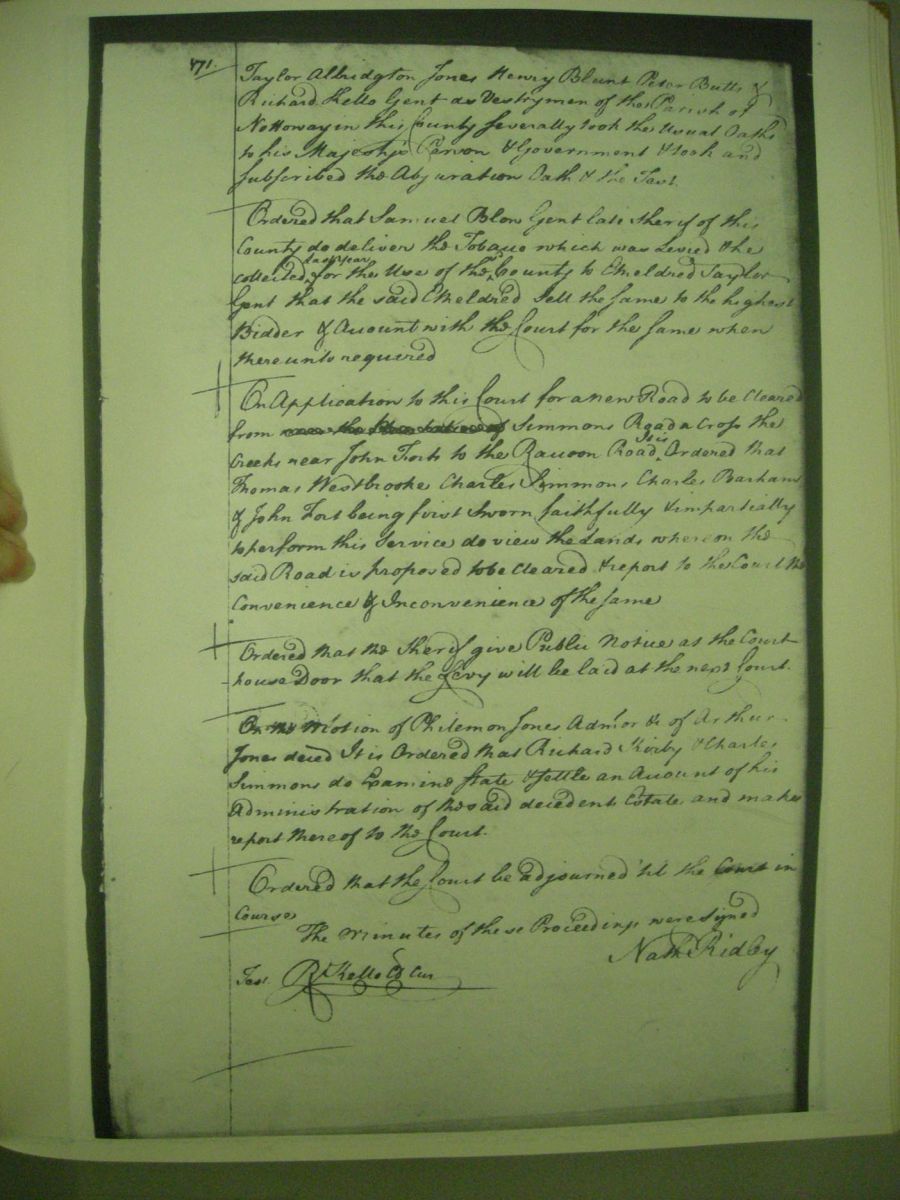 171.
Taylor Albridgton Jones Henry Blunt Peter Butts &
Richard Kello Gent as Vestrymen of the Parish of
Nottoway in this County severally took the Usual Oaths
to his Majesty's Person & Government & took and
subscribed the Abjuration Oath & the Test.
Ordered that Samuel Blow Gent late Sherif of this
County do deliver the Tobacco which was Levied & he
collected last Year for the Use of the County to Etheldred Taylor
Gent that the said Etheldred Sell the same to the highest
Bidder & Account with the Court for the same when
thereunto required
On Application to this Court for a new Road to be Cleared
from Simmons Road a Cross the
Creeks near John Forts to the Racoon Road It is Ordered that
Thomas Westbrooke Charles Simmons Charles Barham
& John Fort being first Sworn faithfully & impartially
to perform this Service do view the Lands whereon the
said Road is proposed to be Cleared & report to the Court the
Convenience & Inconvenience of the same
Ordered that the Sherif give Public Notice at the Court
house Door that the Levy will be laid at the next Court.
On the Motion of Philemon Jones Admor &c of Arthur
Jones deced It is Ordered that Richard Kirby & Charles
Simmons do Examine State & settle an Account of his
Administration of the said decedents Estate and make
report thereof to the Court.
Ordered that the Court be adjourned 'til the Court in
Course
The minutes of these Proceedings were Signed
Nath Ridley
Test Rd Kello Cl Cur